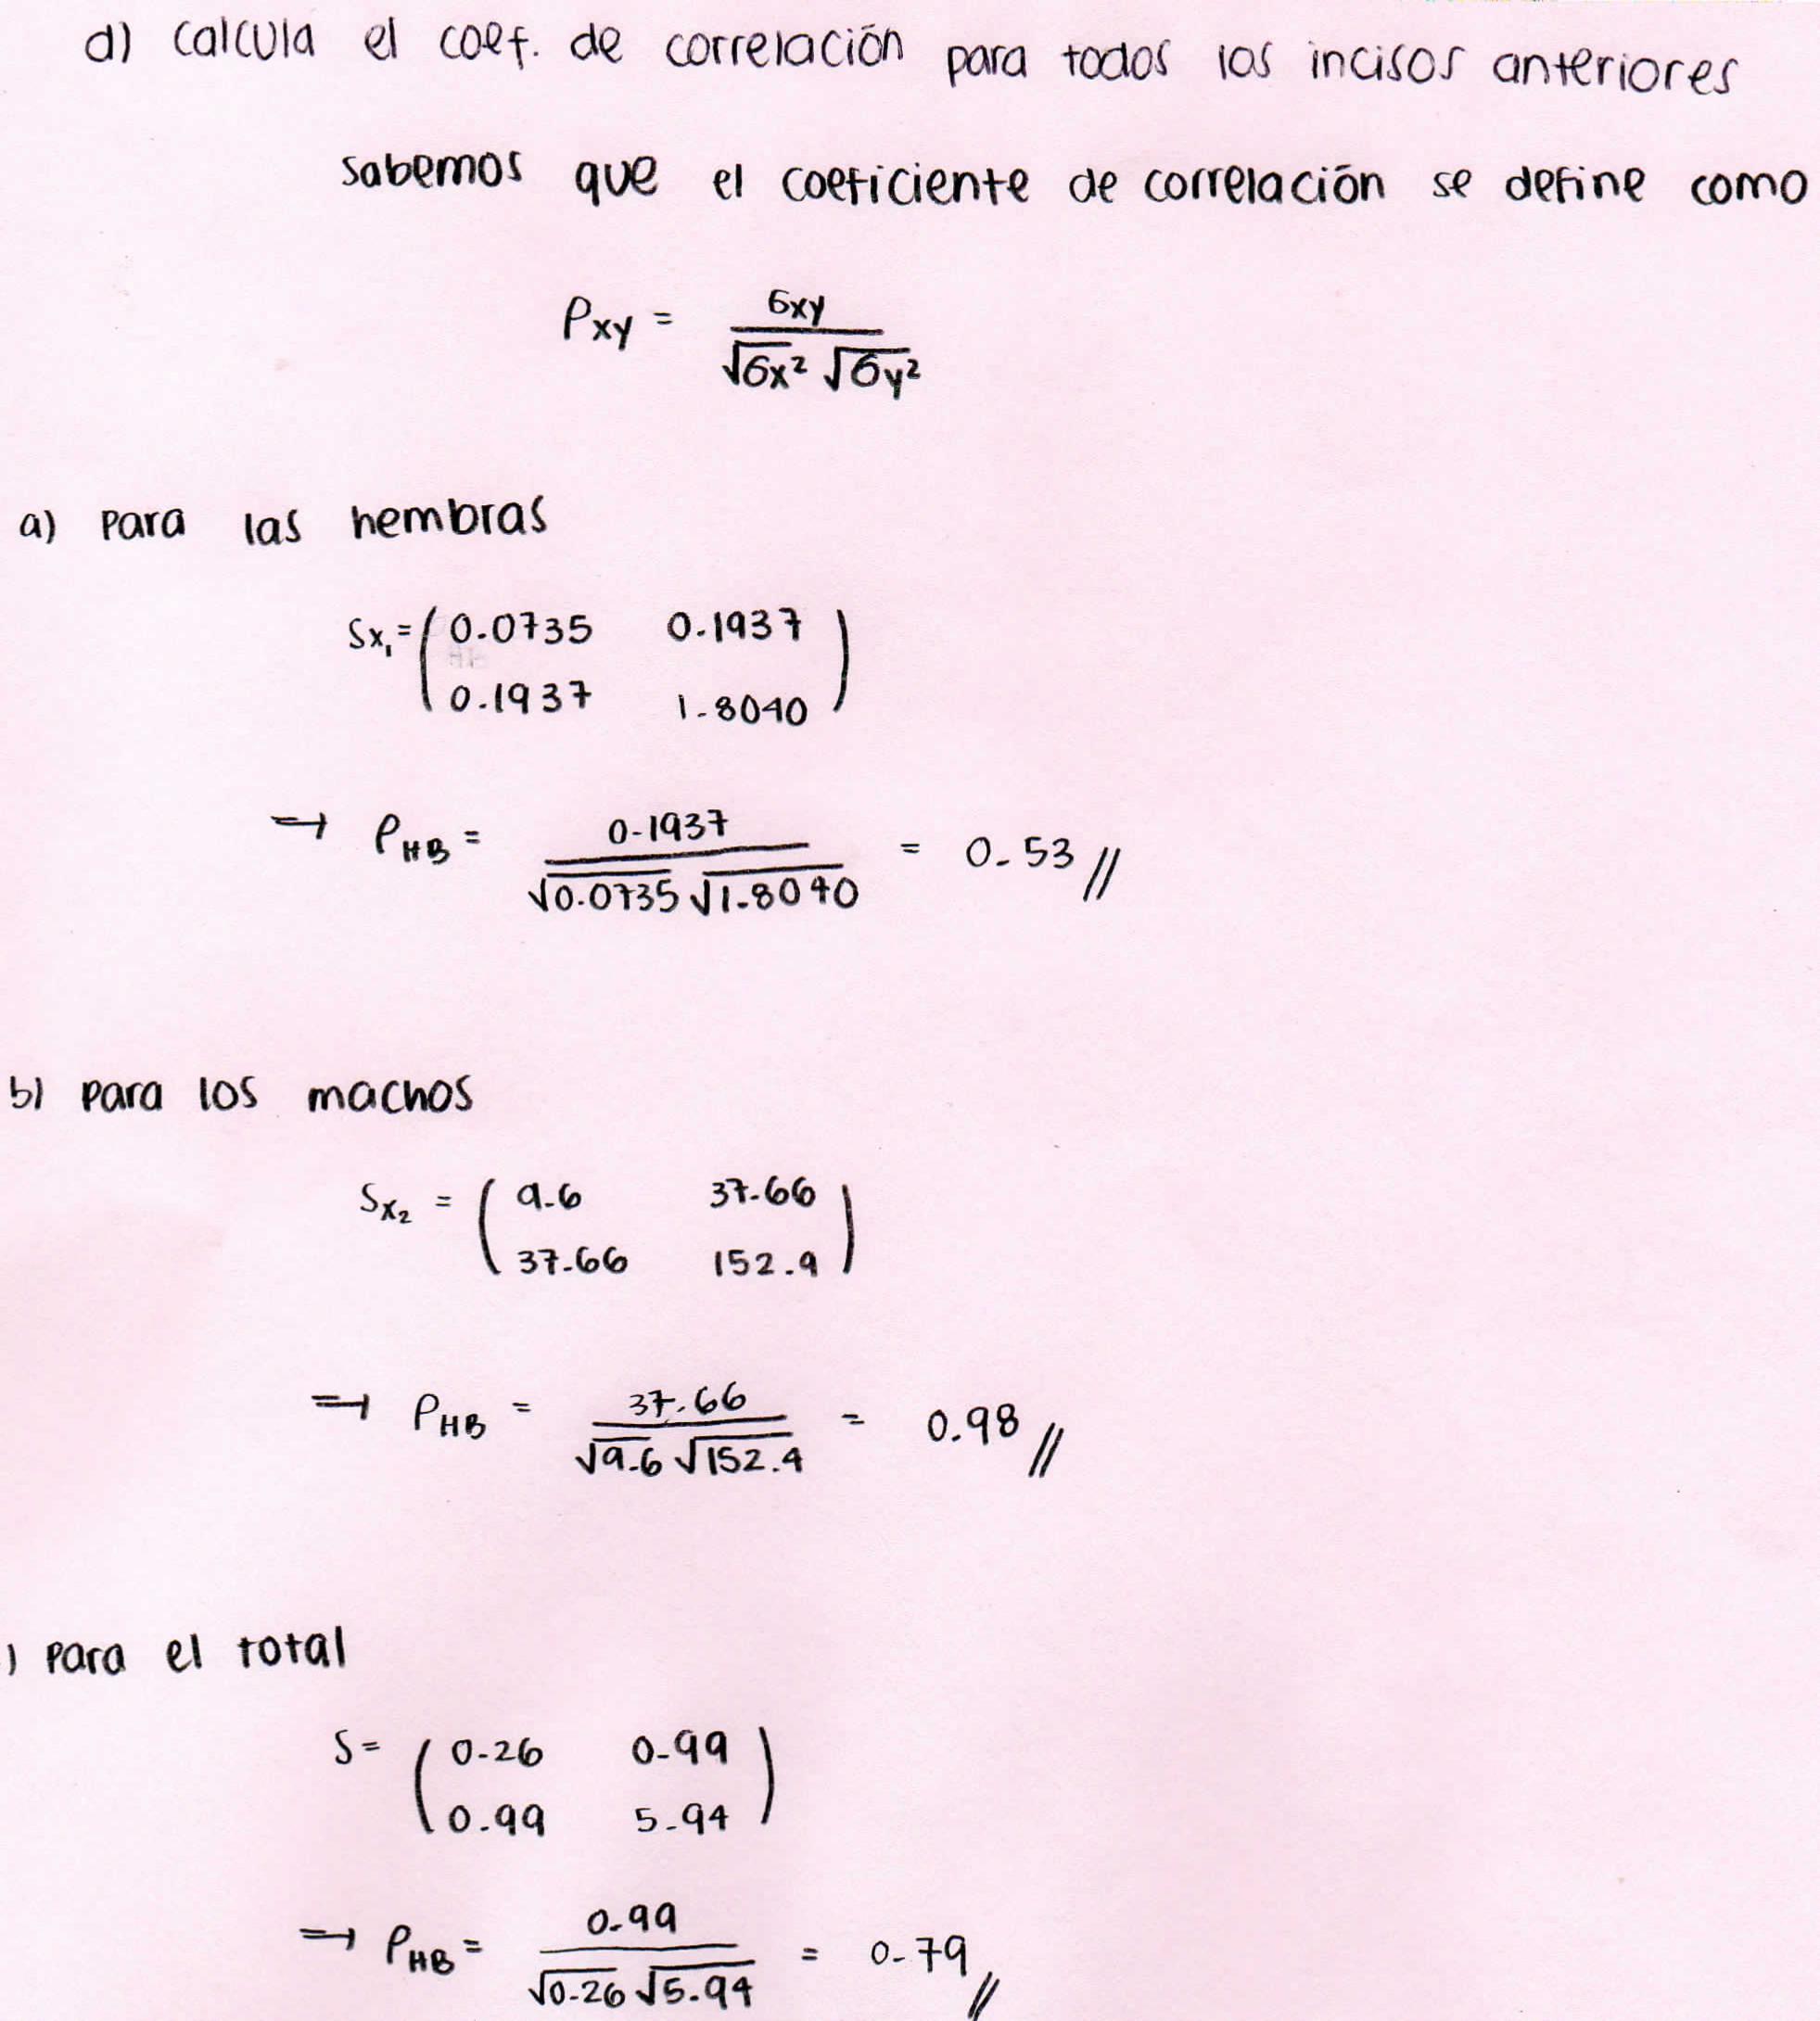 d) calcula el coef. de correlación para todos los incisos anteriores
sabemos que el coeficiente de correlación se define como
ρxy = σxy / √σx² √σy²
a) para las hembras
Sx₁ = ( 0.0735 0.1937
0.1937 1.8040 )
⇒ ρHB = 0.1937 / √0.0735 √1.8040 = 0.53 //
b) para los machos
Sx₂ = ( 9.6 37.66
37.66 152.9 )
⇒ ρHB = 37.66 / √9.6 √152.9 = 0.98 //
) para el total
S = ( 0.26 0.99
0.99 5.94 )
⇒ ρHB = 0.99 / √0.26 √5.94 = 0.79 //